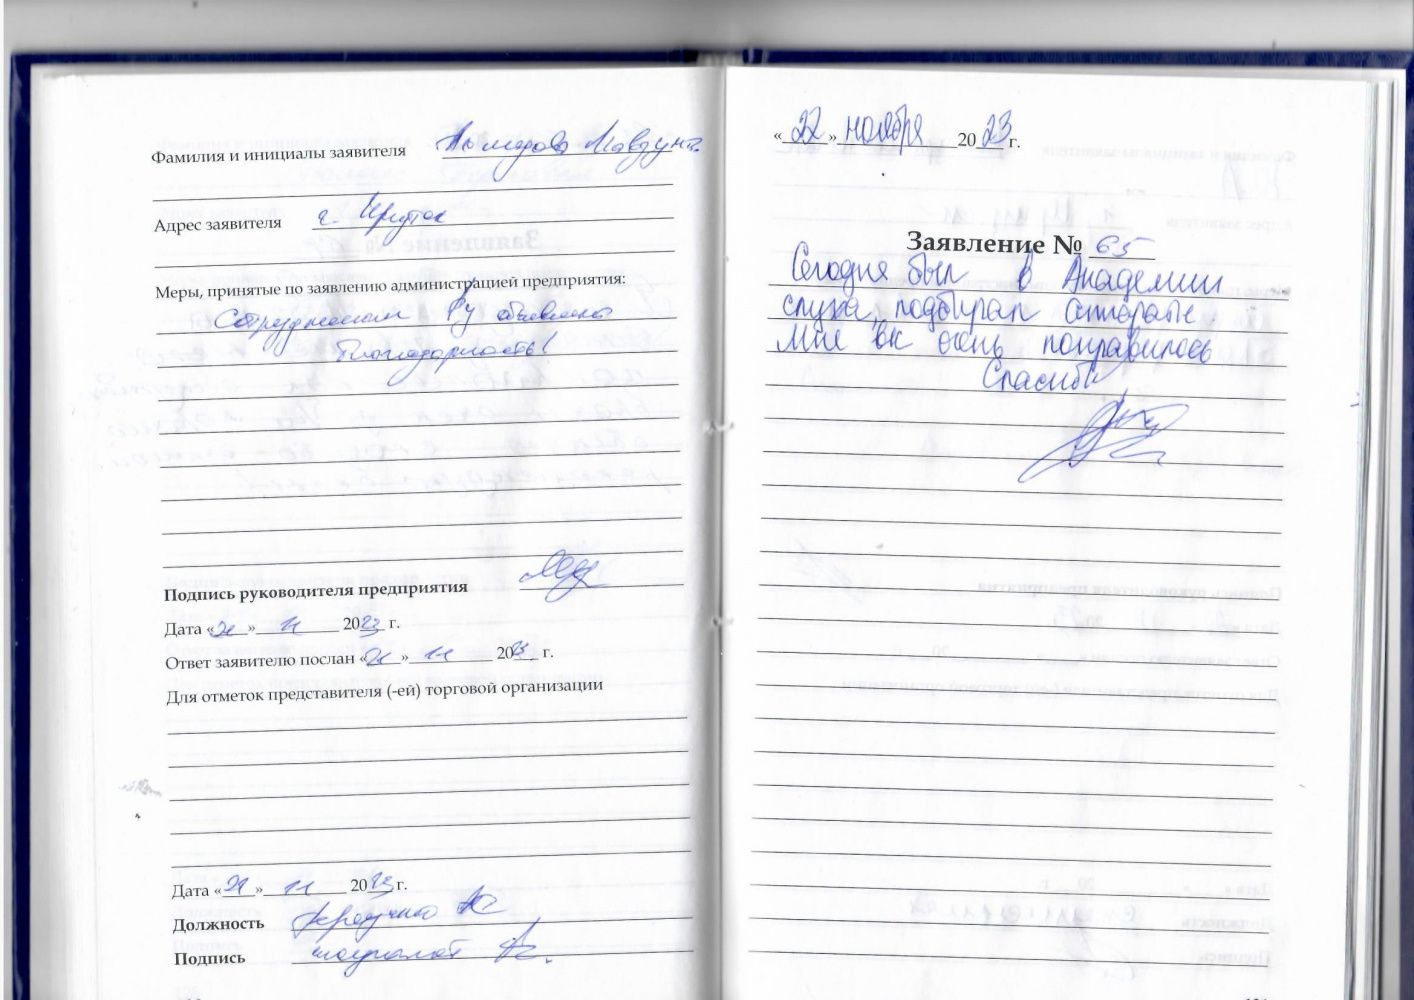 Фамилия и инициалы заявителя
Адрес заявителя г. Иркутск
Меры, принятые по заявлению администрацией предприятия:
Сотрудникам объявлена
благодарность!
Подпись руководителя предприятия
Дата « » 11 2023 г.
Ответ заявителю послан « » 11 2023 г.
Для отметок представителя (-ей) торговой организации
Дата « » 11 2023 г.
Должность
Подпись
«22» ноября 2023 г.
Заявление № 65
Сегодня был в Академии
слуха, подбирал аппараты.
Мне всё очень понравилось
Спасибо